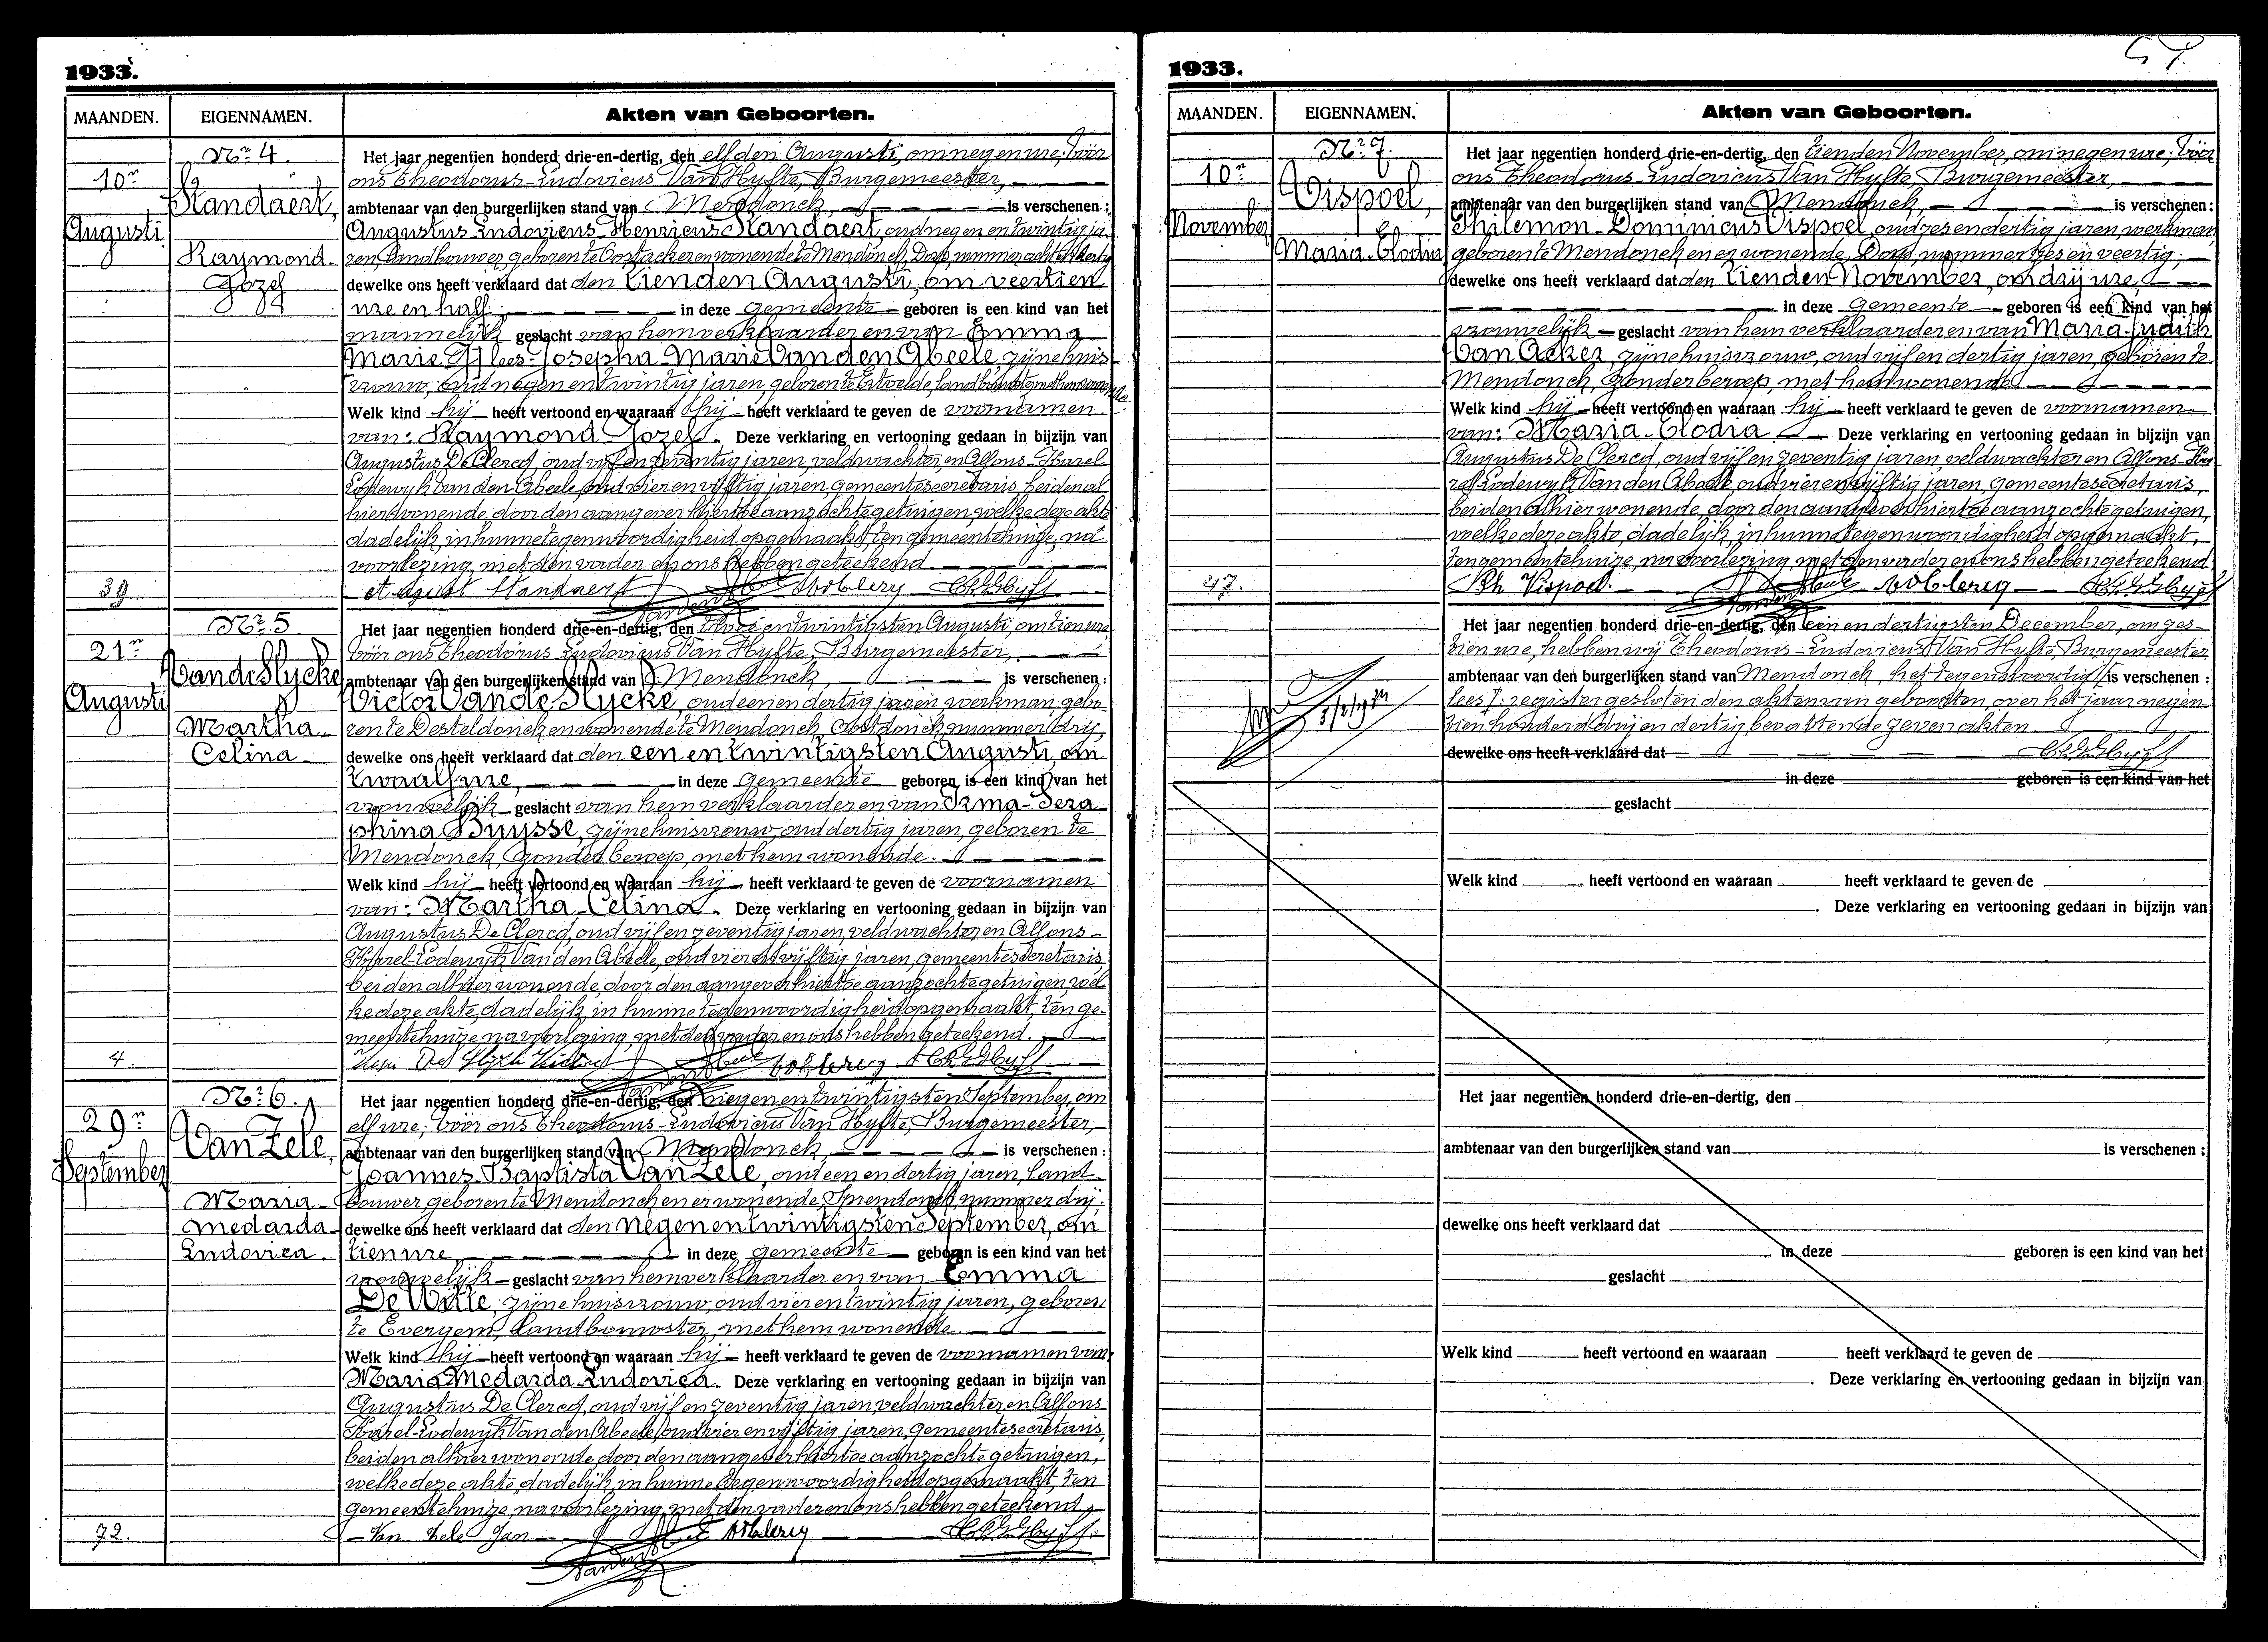 1933.
MAANDEN. EIGENNAMEN. Akten van Geboorten.
Nr. 4.
10n
Augusti
Standaert,
Raymond-
Jozef
39
Het jaar negentien honderd drie-en-dertig, den elfden Augusti, om negen ure, vóór
ons Theodorus-Ludovicus Van Hyfte, Burgemeester,
ambtenaar van den burgerlijken stand van Mendonck, is verschenen:
Augustus-Ludovicus-Henricus Standaert, oud negen en twintig ja-
ren, landbouwer, geboren te Oostacker en wonende te Mendonck, Dorp, nummer
dewelke ons heeft verklaard dat den tienden Augusti, om veertien
ure en half, in deze gemeente geboren is een kind van het
mannelijk geslacht van hem verklaarder en van Emma
Marie lees: Josepha-Marie Van den Abeele, zijne huis-
vrouw, oud negen en twintig jaren, geboren te Ertvelde,
Welk kind hij heeft vertoond en waaraan hij heeft verklaard te geven de voornamen
van: Raymond Jozef. Deze verklaring en vertooning gedaan in bijzijn van
Augustus De Clercq, oud vijf en zeventig jaren, veldwachter, en Alfons-Karel-
Lodewijk Van den Abeele, oud vier en vijftig jaren, gemeentesecretaris, beiden al-
hier wonende, door den aangever hiertoe aanzochte getuigen, welke deze akte
dadelijk, in hunne tegenwoordigheid opgemaakt, ten gemeentehuize, na
voorlezing, met den vader en ons hebben geteekend.
August Standaert
Nr. 5.
21n
Augusti
Van de Slycke,
Martha-
Celina
4.
Het jaar negentien honderd drie-en-dertig, den twee en twintigsten Augusti, om tien ure
vóór ons Theodorus Ludovicus Van Hyfte, Burgemeester,
ambtenaar van den burgerlijken stand van Mendonck, is verschenen:
Victor Van de Slycke, oud een en dertig jaren, werkman, gebo-
ren te Desteldonck en wonende te Mendonck, nummer drij,
dewelke ons heeft verklaard dat den een en twintigsten Augusti, om
twaalf ure, in deze gemeente geboren is een kind van het
vrouwelijk geslacht van hem verklaarder en van Irma-Sera-
phina Buysse, zijne huisvrouw, oud dertig jaren, geboren te
Mendonck, zonder beroep, met hem wonende.
Welk kind hij heeft vertoond en waaraan hij heeft verklaard te geven de voornamen
van: Martha-Celina. Deze verklaring en vertooning gedaan in bijzijn van
Augustus De Clercq, oud vijf en zeventig jaren, veldwachter en Alfons-
Karel-Lodewijk Van den Abeele, oud vier en vijftig jaren, gemeentesecretaris,
beiden alhier wonende, door den aangever hiertoe aanzochte getuigen, wel-
ke deze akte, dadelijk, in hunne tegenwoordigheid opgemaakt, ten ge-
meentehuize, na voorlezing, met den vader en ons hebben geteekend.
Nr. 6.
29n
September
Van Zele,
Maria-
Medarda-
Ludovica.
72.
Het jaar negentien honderd drie-en-dertig, den negen en twintigsten September, om
elf ure, vóór ons Theodorus-Ludovicus Van Hyfte, Burgemeester,
ambtenaar van den burgerlijken stand van Mendonck, is verschenen:
Joannes-Baptista Van Zele, oud een en dertig jaren, land-
bouwer, geboren te Mendonck en er wonende, Sprendonck, nummer drij;
dewelke ons heeft verklaard dat den negen en twintigsten September, om
tien ure, in deze gemeente geboren is een kind van het
vrouwelijk geslacht van hem verklaarder en van Emma
De Witte, zijne huisvrouw, oud vier en twintig jaren, geboren
te Evergem, landbouwster, met hem wonende.
Welk kind hij heeft vertoond en waaraan hij heeft verklaard te geven de voornamen van:
Maria-Medarda-Ludovica. Deze verklaring en vertooning gedaan in bijzijn van
Augustus De Clercq, oud vijf en zeventig jaren, veldwachter en Alfons-
Karel-Lodewijk Van den Abeele, oud vier en vijftig jaren, gemeentesecretaris,
beiden alhier wonende, door den aangever hiertoe aanzochte getuigen,
welke deze akte, dadelijk, in hunne tegenwoordigheid opgemaakt, ten
gemeentehuize, na voorlezing, met den vader en ons hebben geteekend.
Van Zele Jan
1933.
MAANDEN. EIGENNAMEN. Akten van Geboorten.
Nr. 7.
10n
November
Vispoel,
Maria-Elodia
47.
Het jaar negentien honderd drie-en-dertig, den tienden November, om negen ure, vóór
ons Theodorus-Ludovicus Van Hyfte, Burgemeester,
ambtenaar van den burgerlijken stand van Mendonck, is verschenen:
Philemon-Dominicus Vispoel, oud zes en dertig jaren, werkman,
geboren te Mendonck en er wonende, Dorp, nummer zes en veertig;
dewelke ons heeft verklaard dat den tienden November, om drij ure,
in deze gemeente geboren is een kind van het
vrouwelijk geslacht van hem verklaarder en van Maria-Judith
Van Acker, zijne huisvrouw, oud vijf en dertig jaren, geboren te
Mendonck, zonder beroep, met hem wonende.
Welk kind hij heeft vertoond en waaraan hij heeft verklaard te geven de voornamen
van: Maria-Elodia. Deze verklaring en vertooning gedaan in bijzijn van
Augustus De Clercq, oud vijf en zeventig jaren, veldwachter en Alfons-Ka-
rel-Lodewijk Van den Abeele, oud vier en vijftig jaren, gemeentesecretaris,
beiden alhier wonende, door den aangever hiertoe aanzochte getuigen,
welke deze akte, dadelijk, in hunne tegenwoordigheid opgemaakt,
ten gemeentehuize, na voorlezing, met den vader en ons hebben geteekend.
Ph Vispoel.
Het jaar negentien honderd drie-en-dertig, den een en dertigsten December, om zes-
tien ure, hebben wij Theodorus-Ludovicus Van Hyfte, Burgemeester
ambtenaar van den burgerlijken stand van Mendonck, het tegenwoordig is verschenen:
lees: register gesloten den akten van geboorten, over het jaar negen-
tien honderd drij en dertig, bevattende zeven akten.
dewelke ons heeft verklaard dat
in deze geboren is een kind van het
geslacht
Welk kind heeft vertoond en waaraan heeft verklaard te geven de
Deze verklaring en vertooning gedaan in bijzijn van
Het jaar negentien honderd drie-en-dertig, den
ambtenaar van den burgerlijken stand van is verschenen:
dewelke ons heeft verklaard dat
in deze geboren is een kind van het
geslacht
Welk kind heeft vertoond en waaraan heeft verklaard te geven de
Deze verklaring en vertooning gedaan in bijzijn van